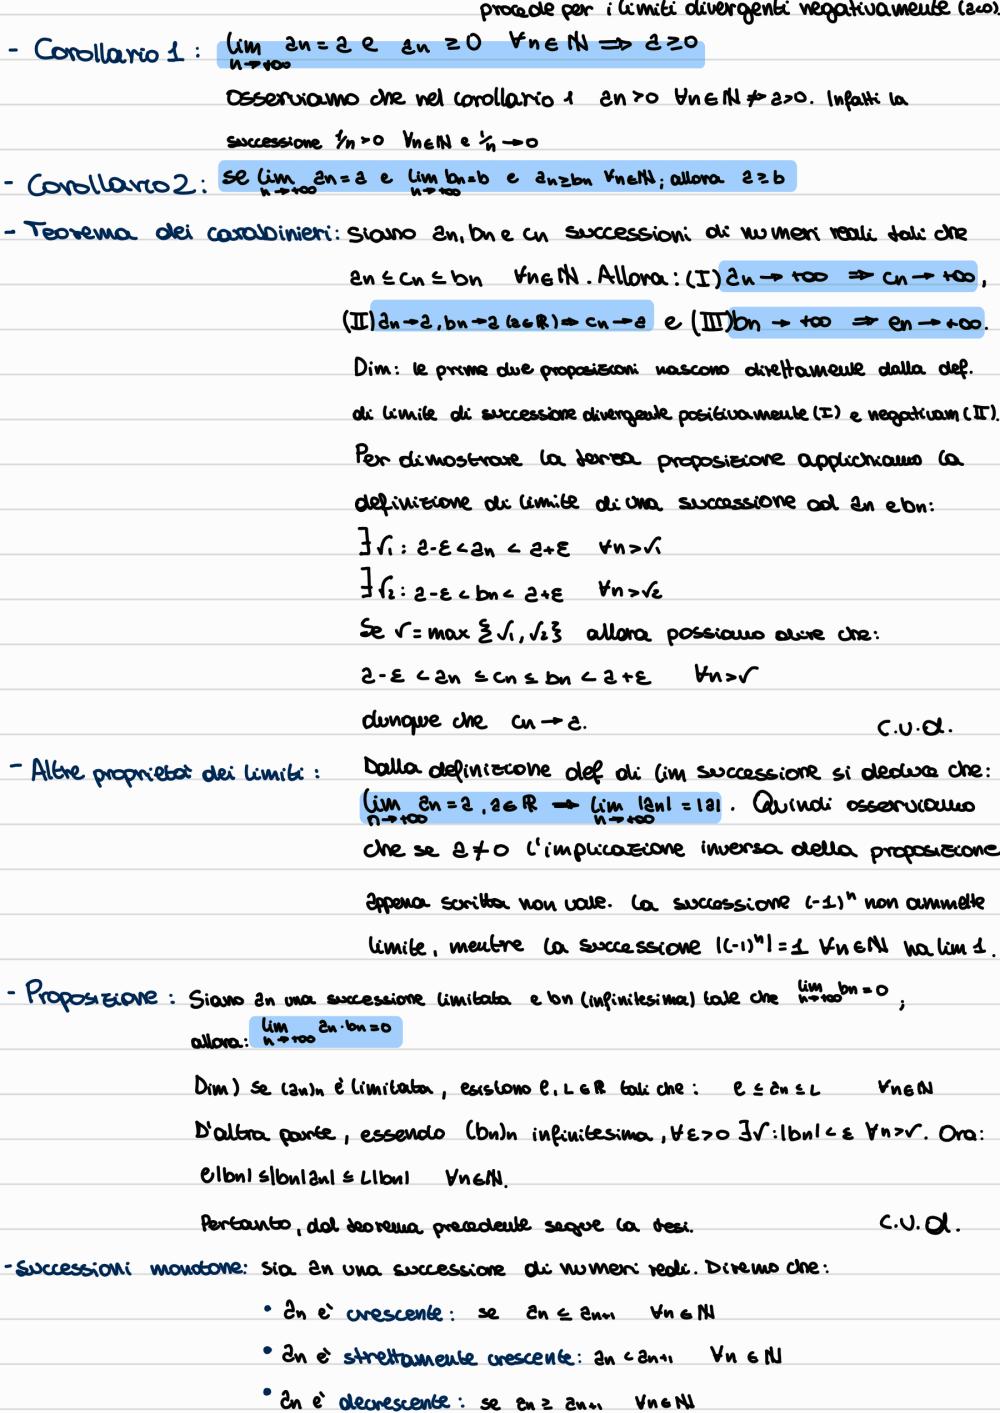 procede per i limiti divergenti negativamente (a<0).
- Corollario 1: lim n→+∞ an = a e an ≥ 0 ∀n∈ℕ ⟹ a ≥ 0
Osserviamo che nel corollario 1 an > 0 ∀n∈ℕ ⇏ a > 0. Infatti la
successione 1/n > 0 ∀n∈ℕ e 1/n → 0
- Corollario 2: se lim n→+∞ an = a e lim n→+∞ bn = b e an ≥ bn ∀n∈ℕ; allora a ≥ b
- Teorema dei carabinieri: Siano an, bn e cn successioni di numeri reali tali che
an ≤ cn ≤ bn ∀n∈ℕ. Allora: (I) an → +∞ ⟹ cn → +∞,
(II) an → a, bn → a (a∈ℝ) ⟹ cn → a e (III) bn → +∞ ⟹ cn → +∞.
Dim: le prime due proposizioni nascono direttamente dalla def.
di limite di successione divergente positivamente (I) e negativam (II).
Per dimostrare la terza proposizione applichiamo la
definizione di limite di una successione ad an e bn:
∃ν₁: a-ε < an < a+ε ∀n>ν₁
∃ν₂: a-ε < bn < a+ε ∀n>ν₂
Se ν = max {ν₁, ν₂} allora possiamo dire che:
a-ε < an ≤ cn ≤ bn < a+ε ∀n>ν
dunque che cn → a. C.V.d.
- Altre proprietà dei limiti: Dalla definizione def di lim successione si deduce che:
lim n→+∞ an = a, a∈ℝ ⟹ lim n→+∞ |an| = |a|. Quindi osserviamo
che se a ≠ 0 l'implicazione inversa della proposizione
appena scritta non vale. La successione (-1)ⁿ non ammette
limite, mentre la successione |(-1)ⁿ| = 1 ∀n∈ℕ ha lim 1.
- Proposizione: Siano an una successione limitata e bn (infinitesima) tale che lim n→+∞ bn = 0;
allora: lim n→+∞ an·bn = 0
Dim) se (an)n è limitata, esistono l, L∈ℝ tali che: l ≤ an ≤ L ∀n∈ℕ
D'altra parte, essendo (bn)n infinitesima, ∀ε>0 ∃ν: |bn| < ε ∀n>ν. Ora:
l|bn| ≤ |bn|an| ≤ L|bn| ∀n∈ℕ.
Pertanto, dal teorema precedente segue la tesi. C.V.d.
- Successioni monotone: sia an una successione di numeri reali. Diremo che:
• an è crescente: se an ≤ an+1 ∀n∈ℕ
• an è strettamente crescente: an < an+1 ∀n∈ℕ
• an è decrescente: se an ≥ an+1 ∀n∈ℕ